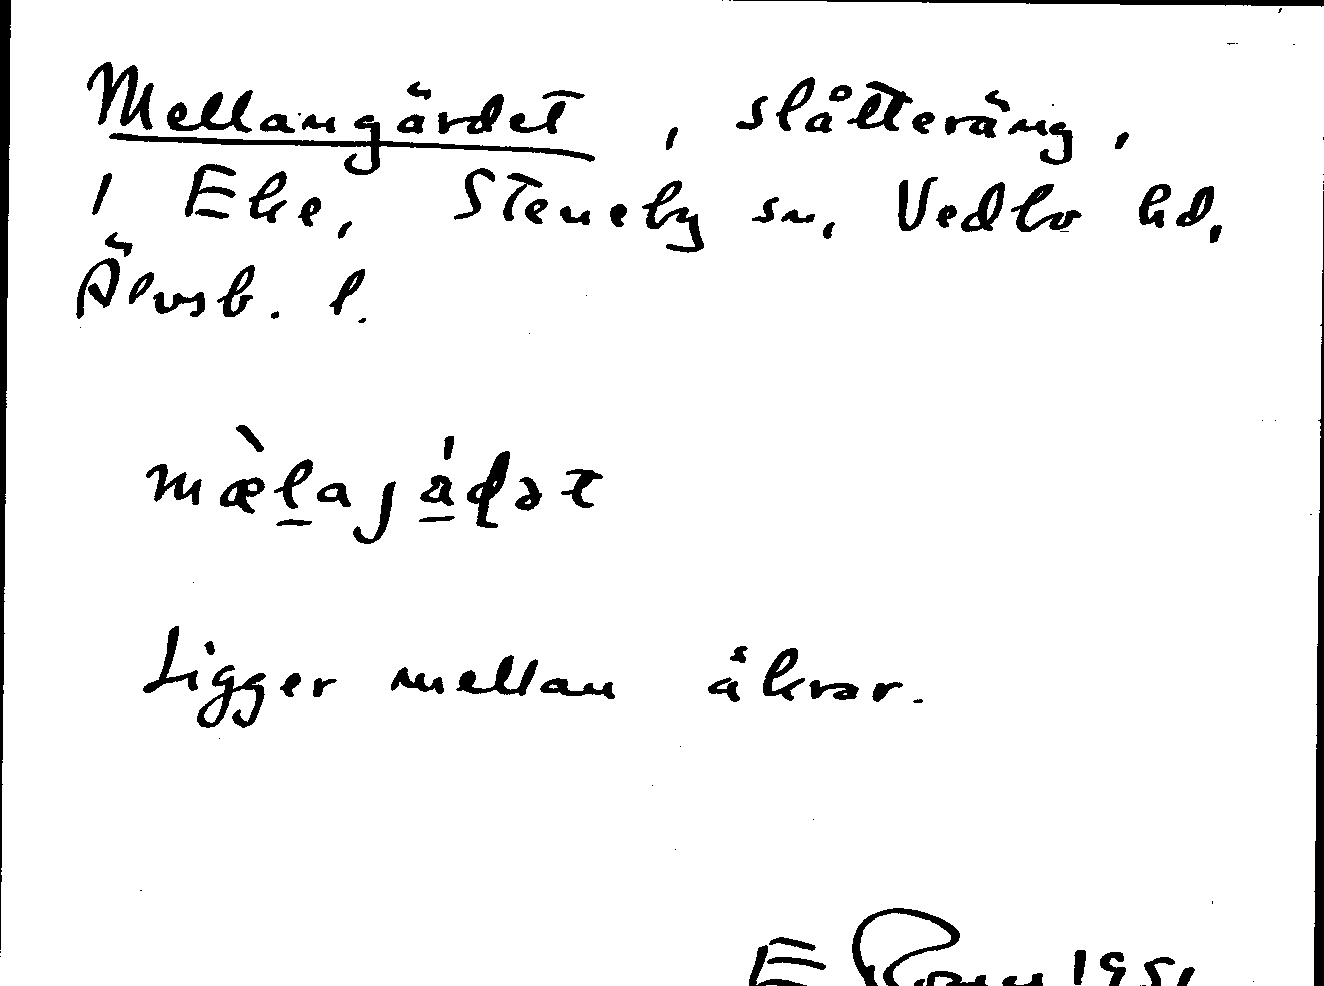 Mellangärdet, slåtteräng,
i Eke, Steneby sn, Vedbo hd,
Älvsb. l.
mæ̀l̲ajá̲ḍət
Ligger mellan åkrar.
E 1951